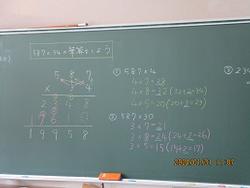 587×34の筆算をしよう
5 8 7
× 3 4
2 3 4 8
1 9 9 5 8
① 587×4
4×7=28
4×8=32(32+2=34)
4×5=20(20+3=23)
② 587×30
3×7=21
3×8=24(24+2=26)
3×5=15(15+2=17)